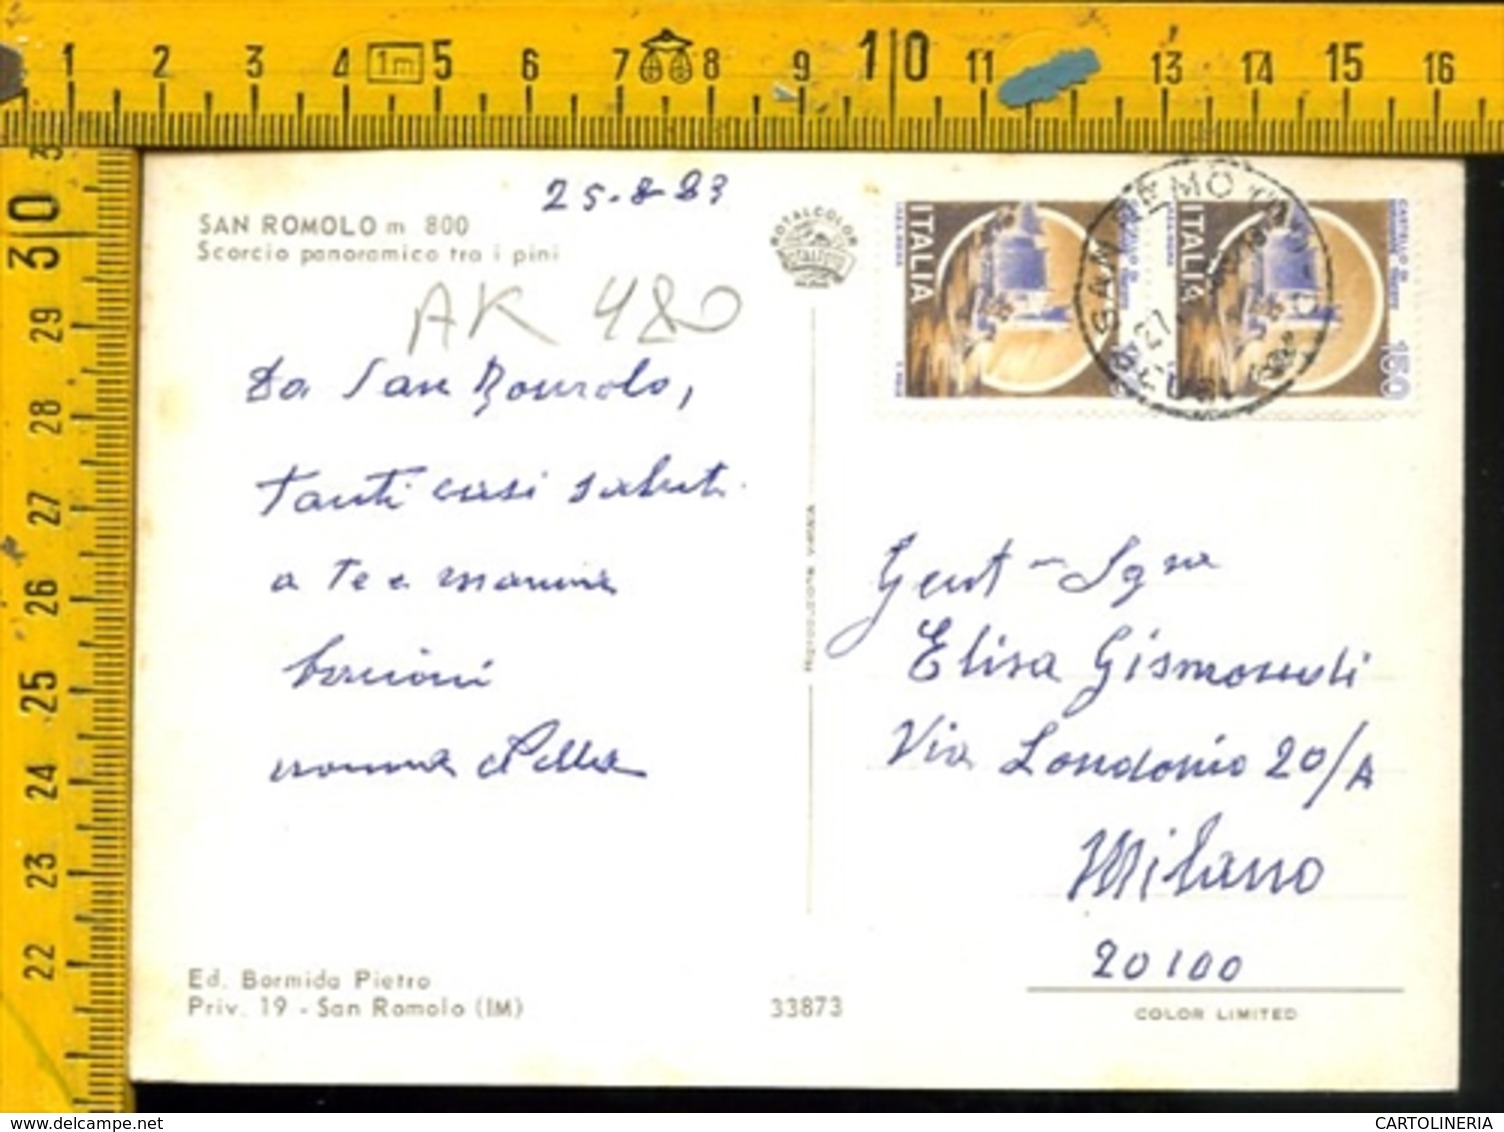 1 2 3 4 1m 5 6 7 8 9 10 11 13 14 15 16
30
29
28
27
26
25
24
23
22
25-8-83
SAN ROMOLO m 800
Scorcio panoramico tra i pini
AK 480
Da San Romolo,
tanti cari saluti
a te e mamma
bacioni
nonna
ROTALCOLOR
ITALIA
ITALIA
CASTELLO DI
150
SAN REMO
27
Gent- Sgra
Elisa Gismondi
Via Londonio 20/A
Milano
20100
Ed. Bormida Pietro
Priv. 19 - San Romolo (IM)
33873
COLOR LIMITED
RIPRODUZIONE VIETATA
CARTOLINERIA